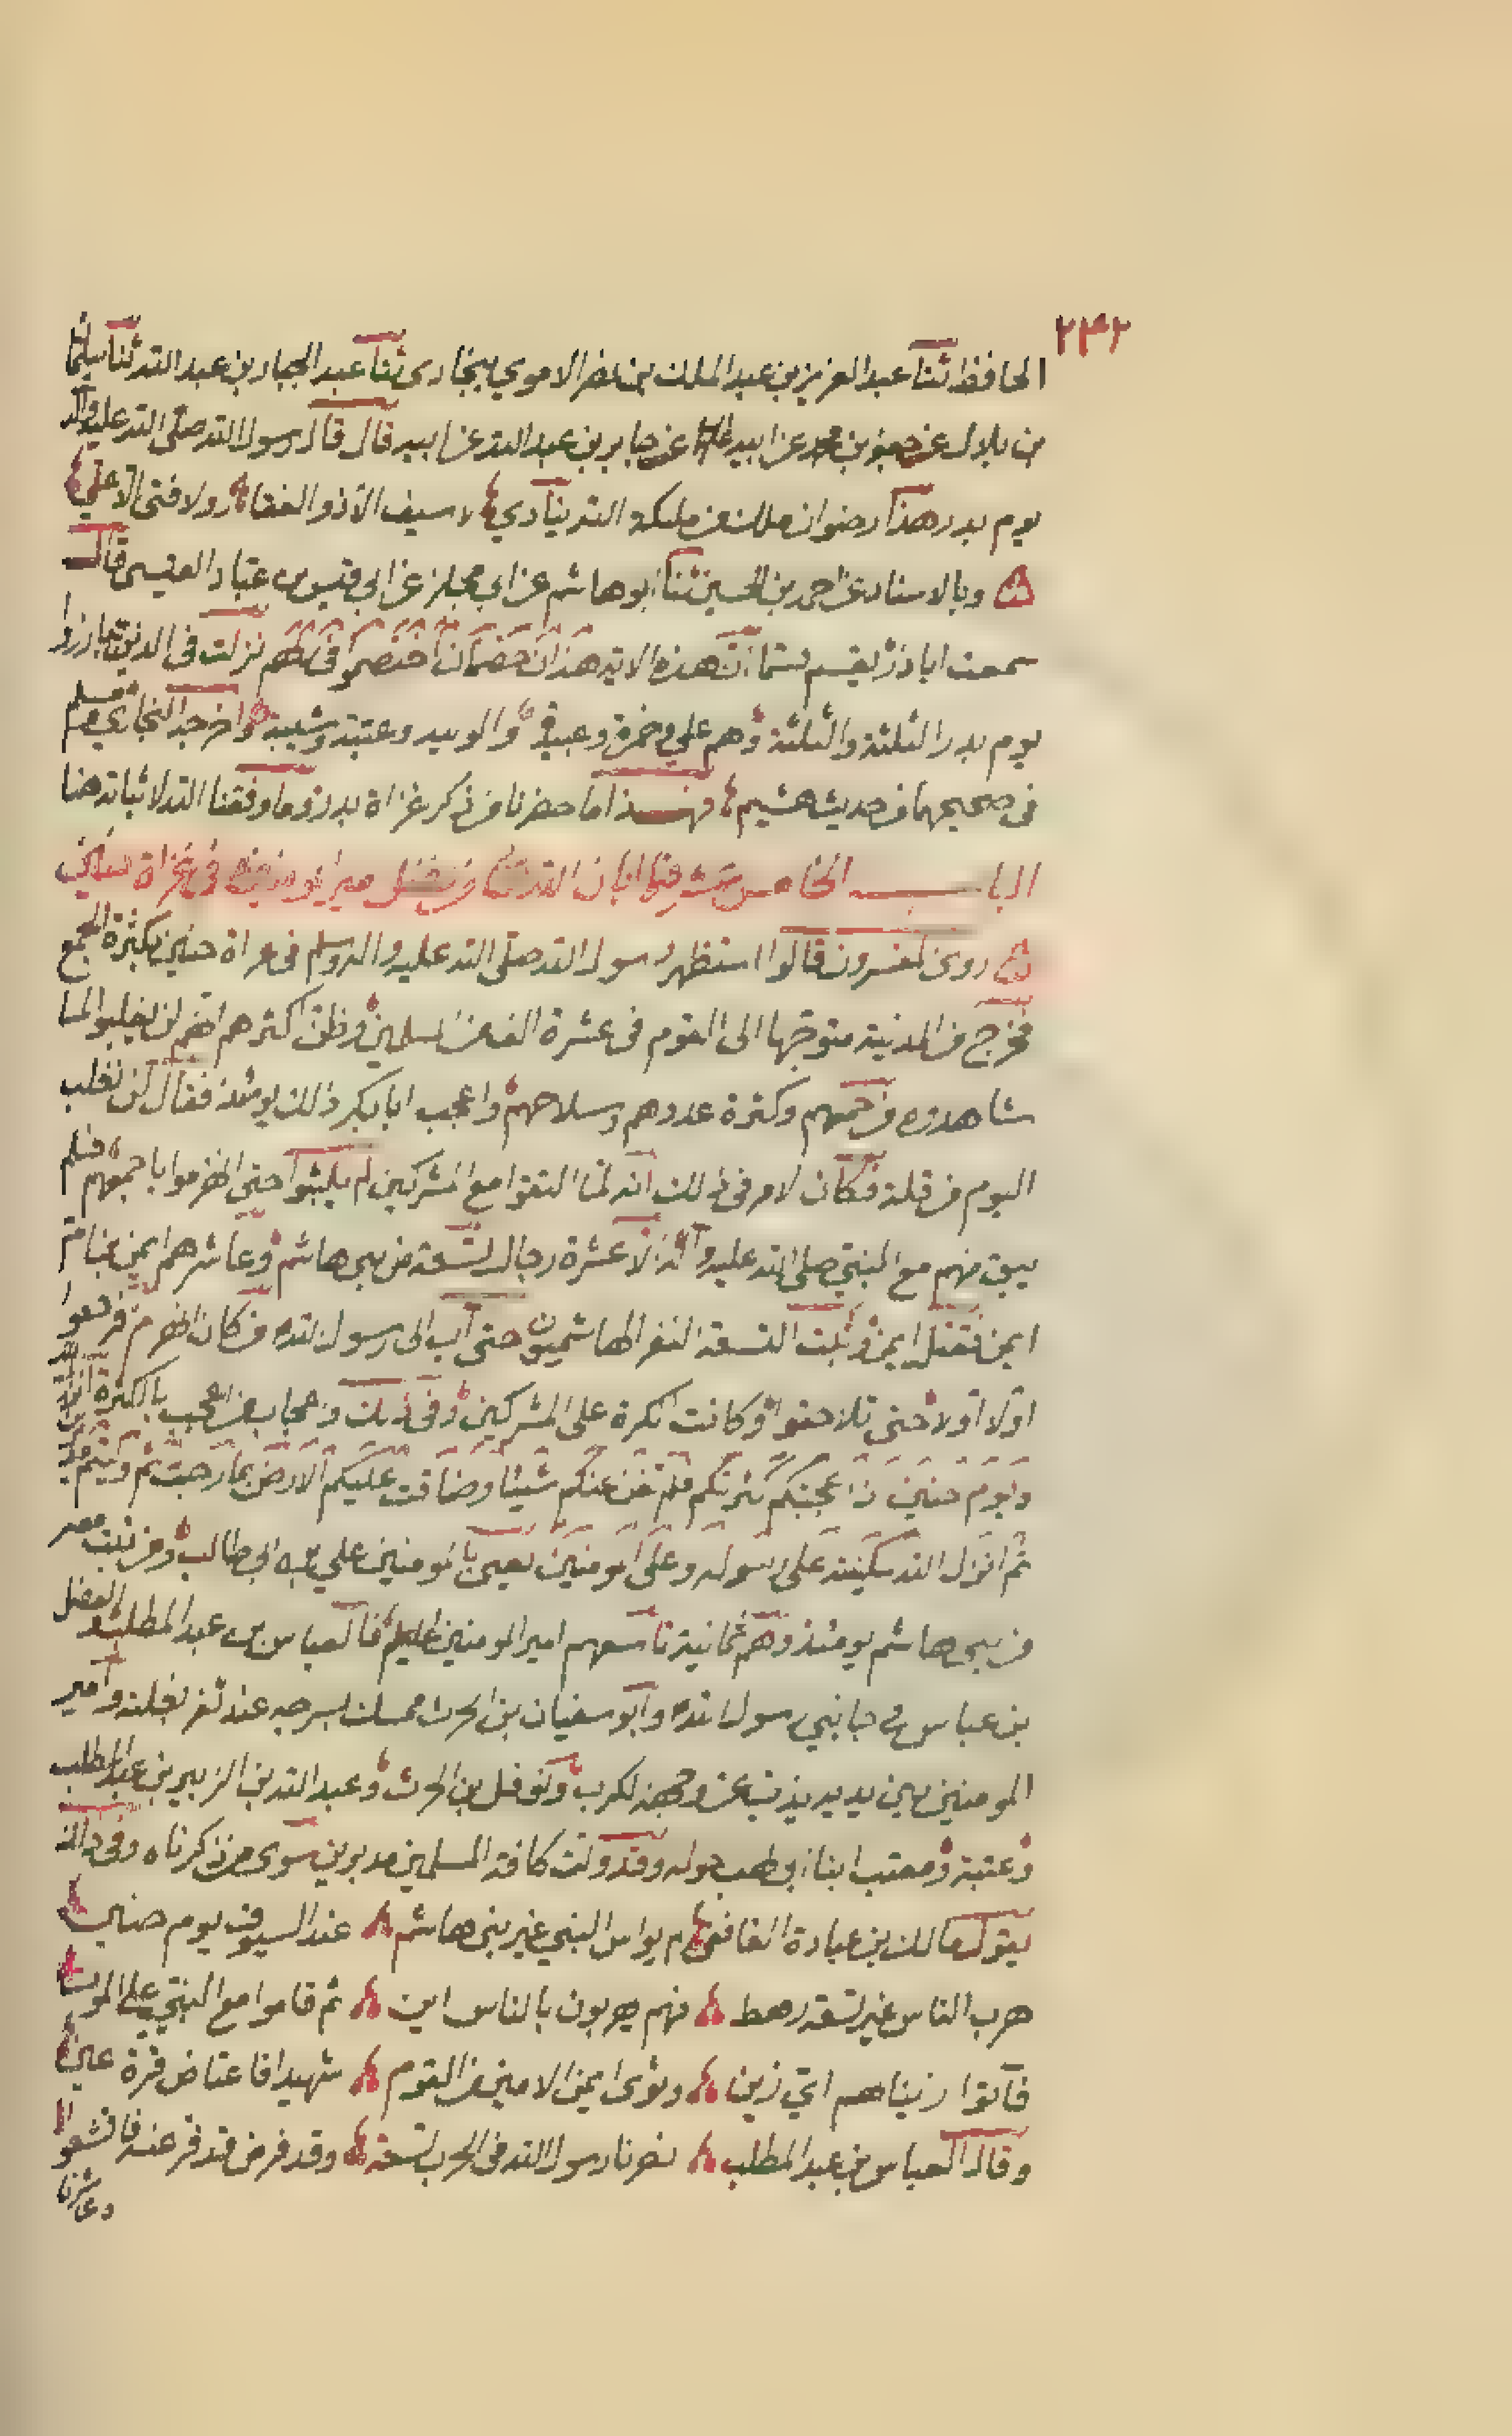 ٢٣٢
الحافظ اثنا عبد العزيز بن عبد الملك بن نضر الاموي ببخارى ثنا عبد الجبار بن عبد الله ثنا سليمان
بن بلال عن جعفر بن محمد عن ابيه عن جابر بن عبد الله عن ابيه قال قال رسول الله صلى الله عليه وآله
يوم بدر هذا رضوان ملك من ملئكة الله ينادي لا سيف الا ذو الفقار ولا فتى الا علي
وبالاسناد عن احمد بن الحسين ثنا ابو هاشم عن ابي مجلز عن ابي قيس بن عباد القيسي قال
سمعت ابا ذر يقسم قسما ان هذه الاية هذان خصمان اختصموا في ربهم نزلت في الذين تبارزوا
يوم بدر الثلثة والثلثة وهم علي وحمزة وعبيدة والوليد وعتبة وشيبة واخرجه البخاري ومسلم
في صحيحهما من حديث هشيم فهذا ما حضرنا من ذكر غزاة بدر وما وفقنا الله لاثباته هنا
الباب الخامس عشر فيما ابان الله تعالى من فضل امير المومنين في غزاة حنين
روى المفسرون قالوا استظهر رسول الله صلى الله عليه واله وسلم في غزاة حنين بكثرة الجمع
فخرج من المدينة متوجها الى القوم في عشرة الف من المسلمين وظن اكثرهم انهم لن يغلبوا لما
شاهدوه من جمعهم وكثرة عددهم وسلاحهم واعجب ابا بكر ذلك يومئذ فقال لن نغلب
اليوم من قلة فكان الامر في ذلك انه لما التقوا مع المشركين لم يلبثوا حتى انهزموا باجمعهم فلم
يبق منهم مع النبي صلى الله عليه وآله الا عشرة رجال تسعة من بني هاشم وعاشرهم ايمن بن ام
ايمن فقتل ايمن وثبت التسعة النفر الهاشميون حتى آب الى رسول الله من كان انهزم فرجعوا
اولا اولا حتى تلاحقوا وكانت الكرة على المشركين وفي ذلك وعجاب من العجب بالكثرة انزل الله
ويوم حنين اذ اعجبتكم كثرتكم فلم تغن عنكم شيئا وضاقت عليكم الارض بما رحبت ثم وليتم مدبرين
ثم انزل الله سكينته على رسوله وعلى المومنين يعني بالمومنين علي بن ابي طالب ومن ثبت معه
من بني هاشم يومئذ وهم ثمانية تاسعهم امير المومنين عليه السلم فالعباس بن عبد المطلب والفضل
بن عباس في جانبي رسول الله وابو سفيان بن الحرث ممسك بسرجه عند ثفر بغلته وامير
المومنين بين يديه يذب عن وجهه الكرب ونوفل بن الحرث وعبد الله بن الزبير بن عبد المطلب
وعتبة ومعتب ابنا ابي لهب حوله وقد ولت كافة المسلمين مدبرين سوى من ذكرناه وفي ذلك
يقول مالك بن عبادة الغافقي لم يواس النبي غير بني هاشم عند السيوف يوم حنين
هرب الناس غير تسعة رهط فهم يهربون بالناس اين ثم قاموا مع النبي على الموت
فآتوا زينا لهم اي زين وثوى ايمن الامين من القوم شهيدا فاعتاض قرة عين
وقال العباس بن عبد المطلب نصرنا رسول الله في الحرب تسعة وقد فر من قد فر عنه فاقشعوا
وعاشرنا